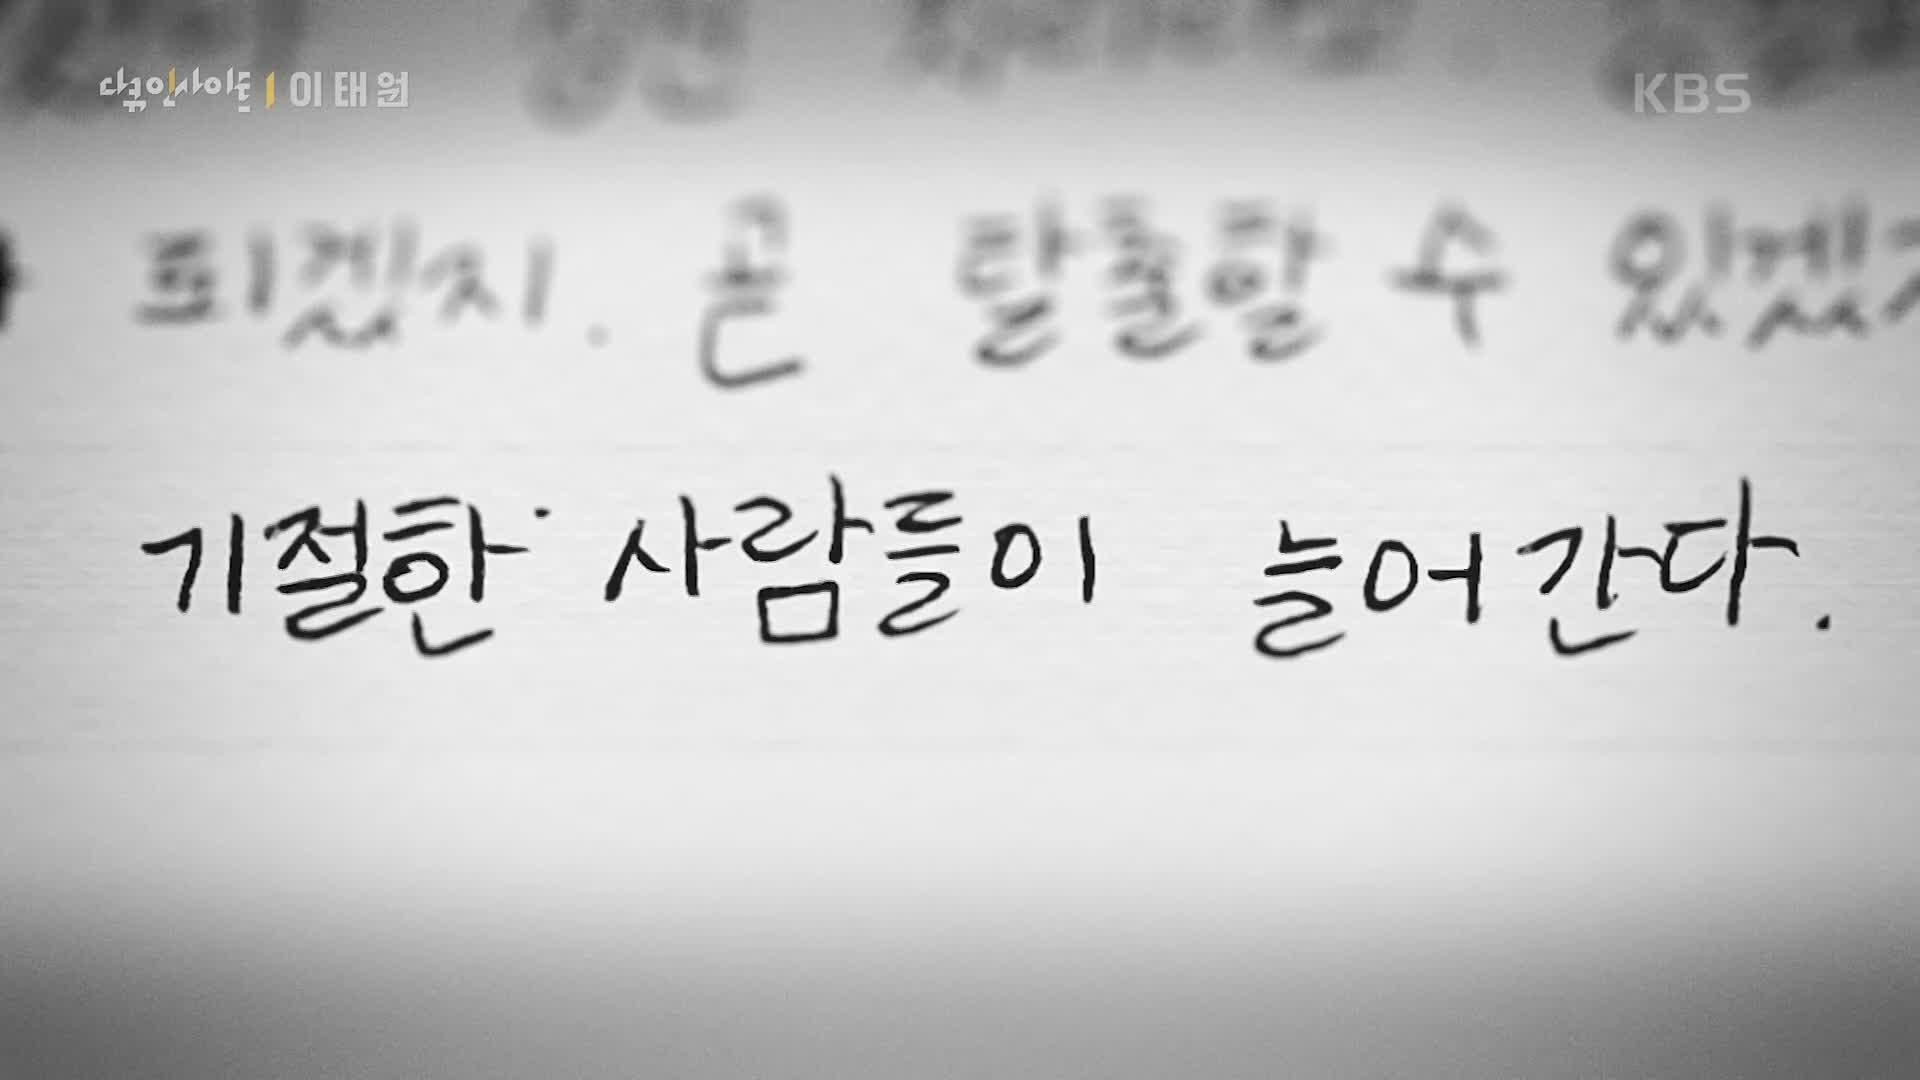 다큐인사이트 | 이태원
KBS
피겠지. 곧 탈출할 수 있겠지
기절한 사람들이 늘어간다.